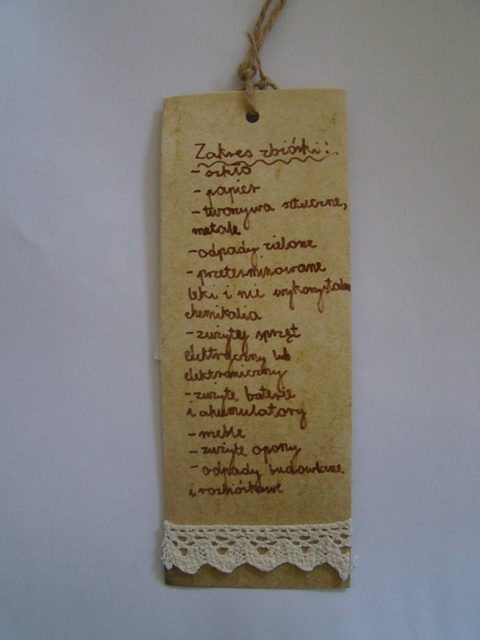 Zakres zbiórki:
- szkło
- papier
- tworzywa sztuczne,
metale
- odpady zielone
- przeterminowane
leki i nie wykorzystane
chemikalia
- zużytej sprzęt
elektryczny lub
elektroniczny
- zużyte baterie
i akumulatory
- meble
- zużyte opony
- odpady budowlane
i rozbiórkowe